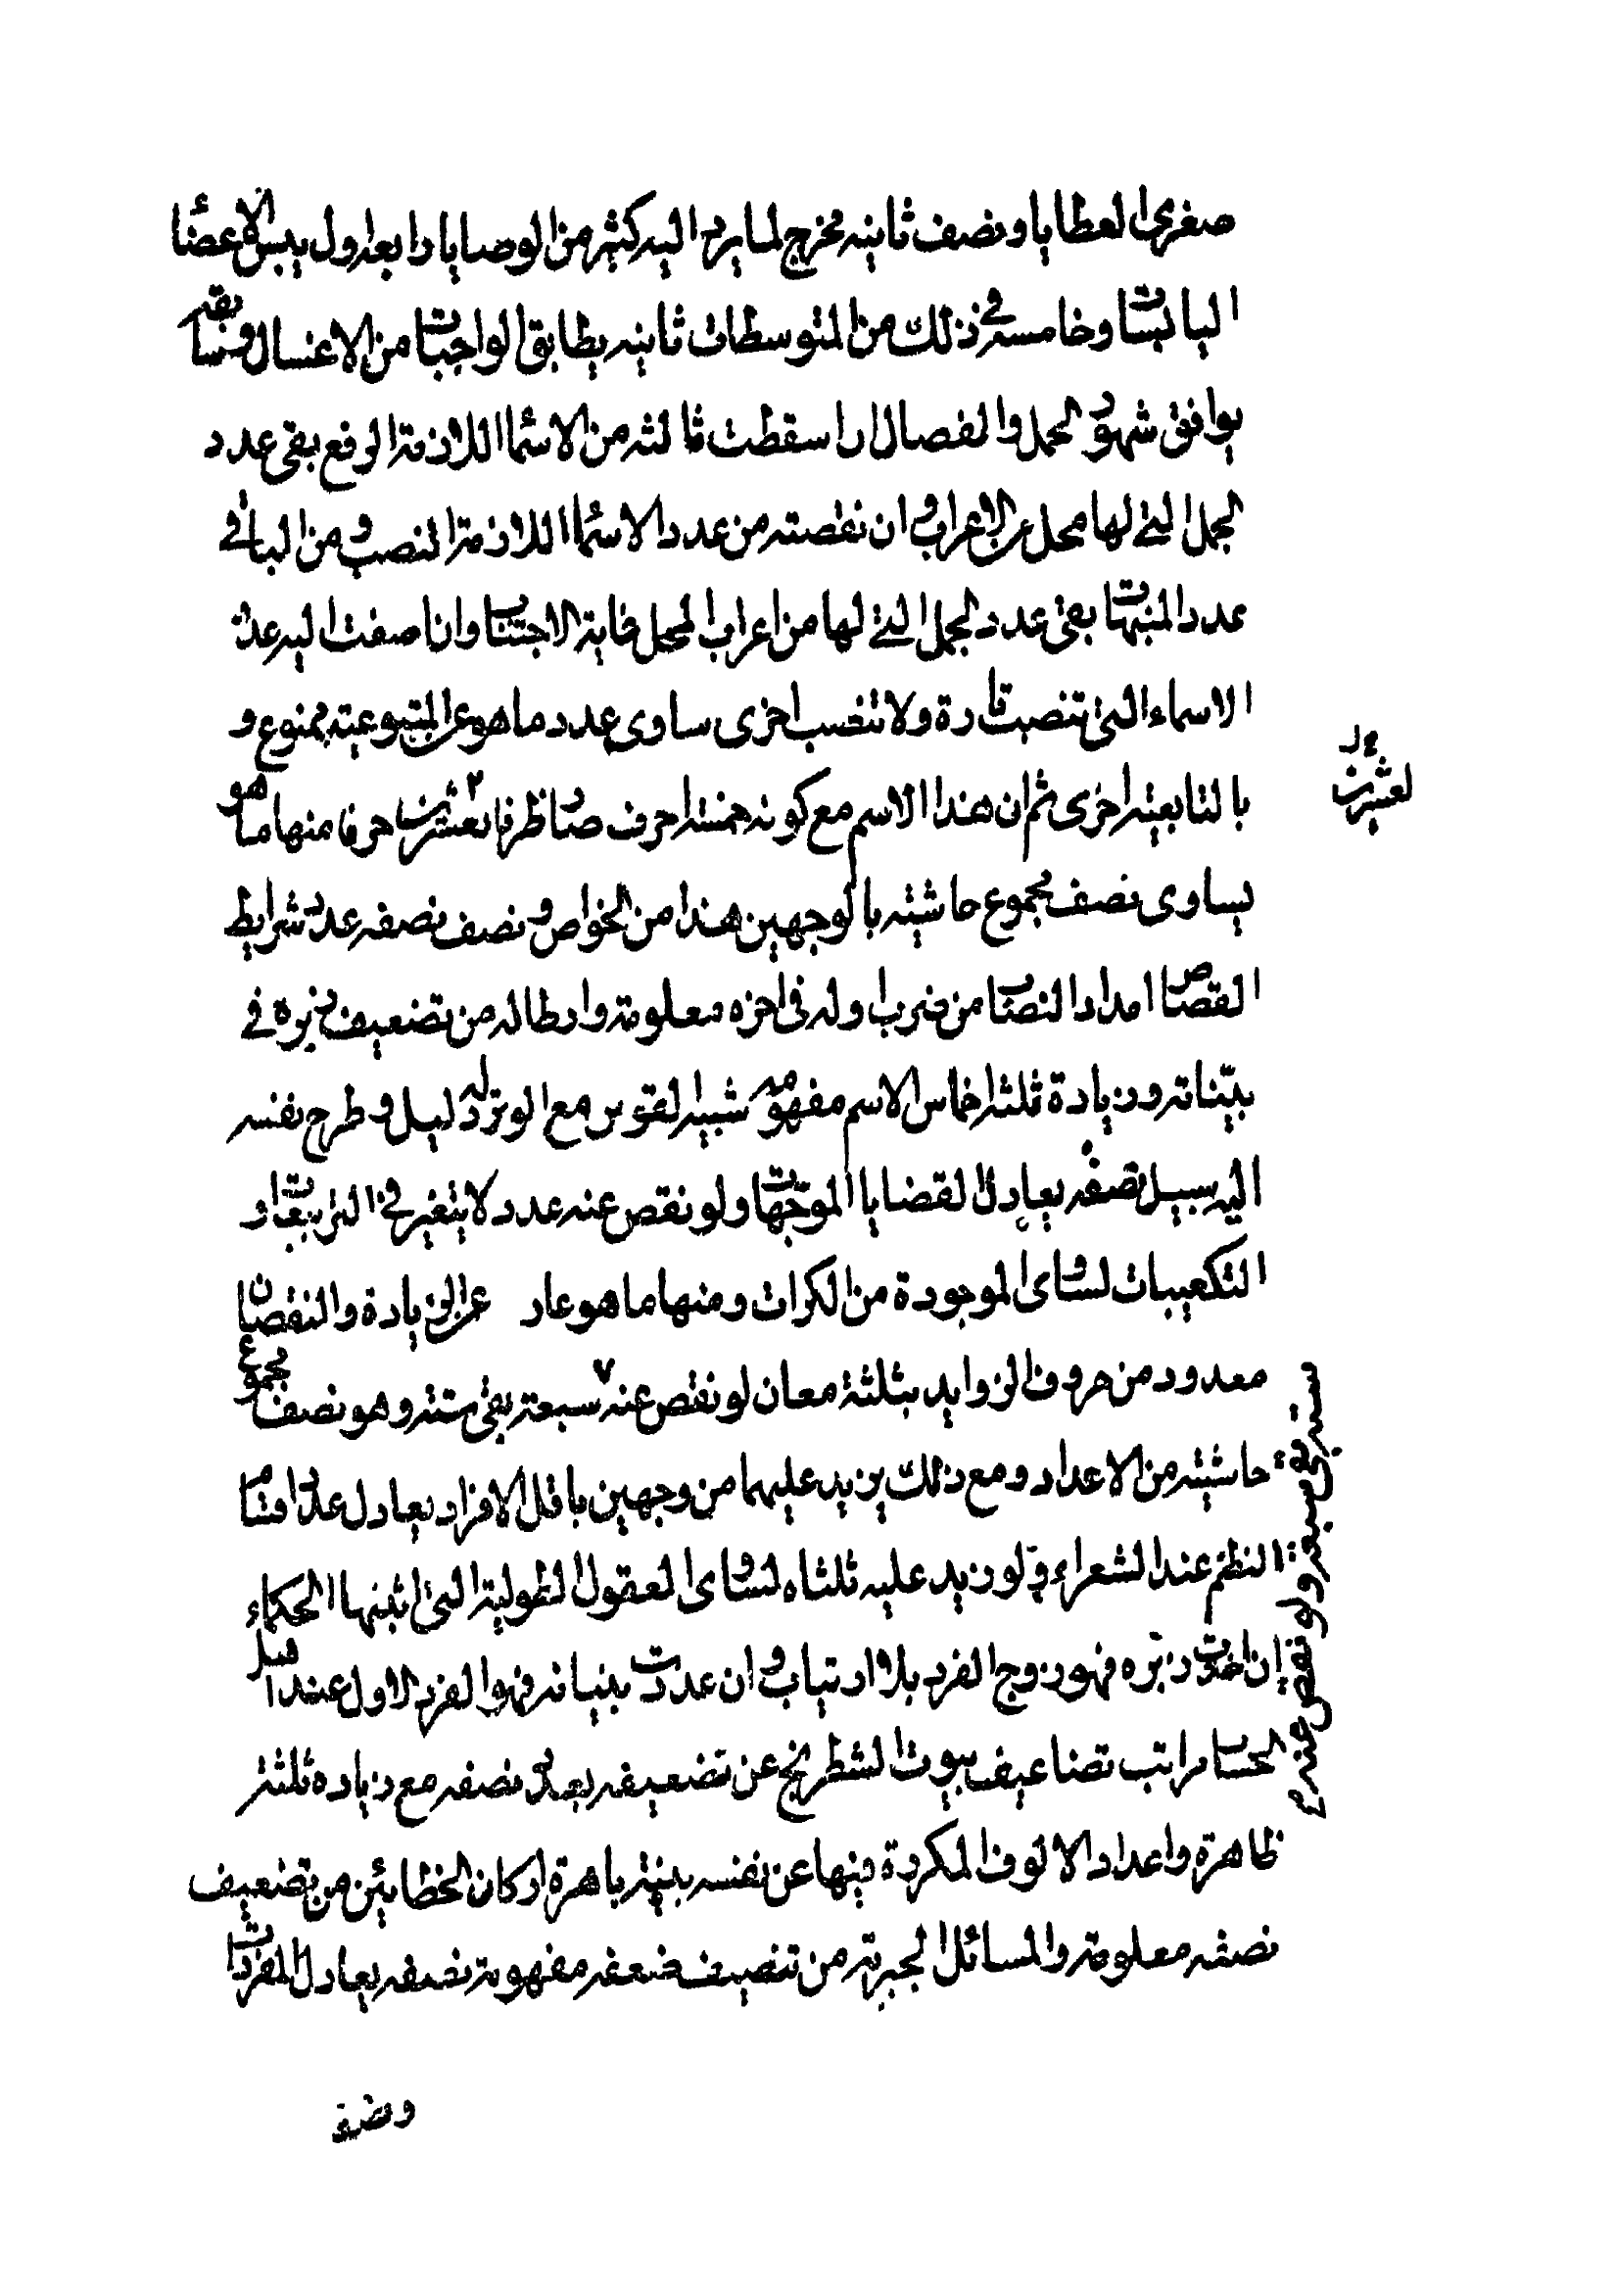 صغرى العطايا ونصف ثانيه مخرج لما يرد اليه كثير من الوصايا رابعه اول يبس الاعضا
اليابسات وخامسه في ذلك من المتوسطات ثانيه يطابق الواجبات من الاغسال وسابقه
يوافق شهور الحمل والفصال ان اسقطت ثالثه من الاسما اللازمة الرفع بقى عدد
الجمل التي لها محل من الاعراب وان نقصته من عدد الاسما اللازمة النصب ومن الباقي
عدد المنبهات بقى عدد الجمل التي لها من اعراب المحل غاية الاجتناب وان اضفت اليه عدة
الاسماء التى تنصب تارة ولا تنصب اخرى ساوى عدد ما هو عن المتبوعيه ممنوع و
بالتابعيه اخرى ثم ان هذا الاسم مع كونه خمسة احرف صار ظرفا لعشرين حرفا منها ما هو
يساوى نصف مجموع حاشيته بالوجهين هذا من الخواص ونصف نصفه عدد شرايط
القصاص امداد النصاب من ضرب اوله فى اخره معلومة وارطاله من تضعيف غيره في
بيّناته وزيادة ثلثة اخماس الاسم مفهومه شبيه القوس مع الوتر له دليل وطرح نفسه
اليه سبيل نصفه يعادل القضايا الموجّهات ولو نقص عنه عدد لا يتغير في التربيعات و
التكعيبات لساوى الموجودة من الكرات ومنها ما هو عار عن الزيادة والنقصان
معدود من حروف الزوايد بثلثة معان لو نقص عنه سبعة بقى ستة وهو نصف مجموع
حاشيته من الاعداد ومع ذلك يزيد عليهما من وجهين باقل الافراد يعادل عدد اقسام
النظم عند الشعراء ولو زيد عليه ثلثاه لساوى العقول الطولية التى اثبتها الحكماء
إن اخذت زبره فهو زوج الفرد بلا ارتياب وان عددت بنياته فهو الفرد الاول عند اهل
الحساب مراتب تضاعيف بيوت الشطرنج عن تضعيفه يعدل نصفه مع زيادة ثلثة
ظاهرة واعداد الالوف المكررة فيها عن نفسه بينه باهرة اركان الخطايئن من تضعيف
نصفه معلومة والمسائل الجبرية من تنصيف ضعفه مفهومة نصفه يعادل المفردات
لعشرين
ولو نقص عنه